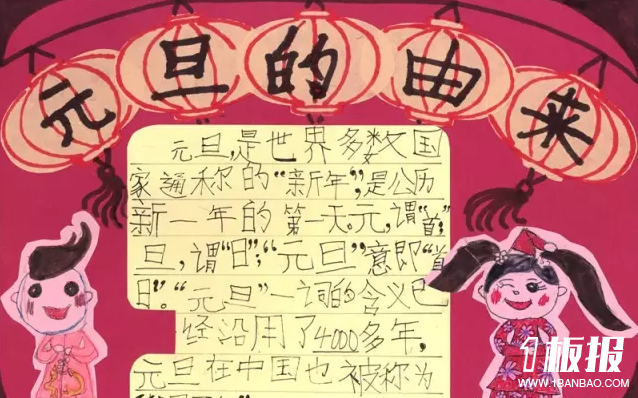 元旦的由来
元旦，是世界多数国
家通称的“新年”，是公历
新一年的第一天。元，谓“首”；
旦，谓“日”；“元旦”意即“首
日”。“元旦”一词的含义已
经沿用了4000多年，
元旦在中国也被称为
1板报
WWW.1BANBAO.COM